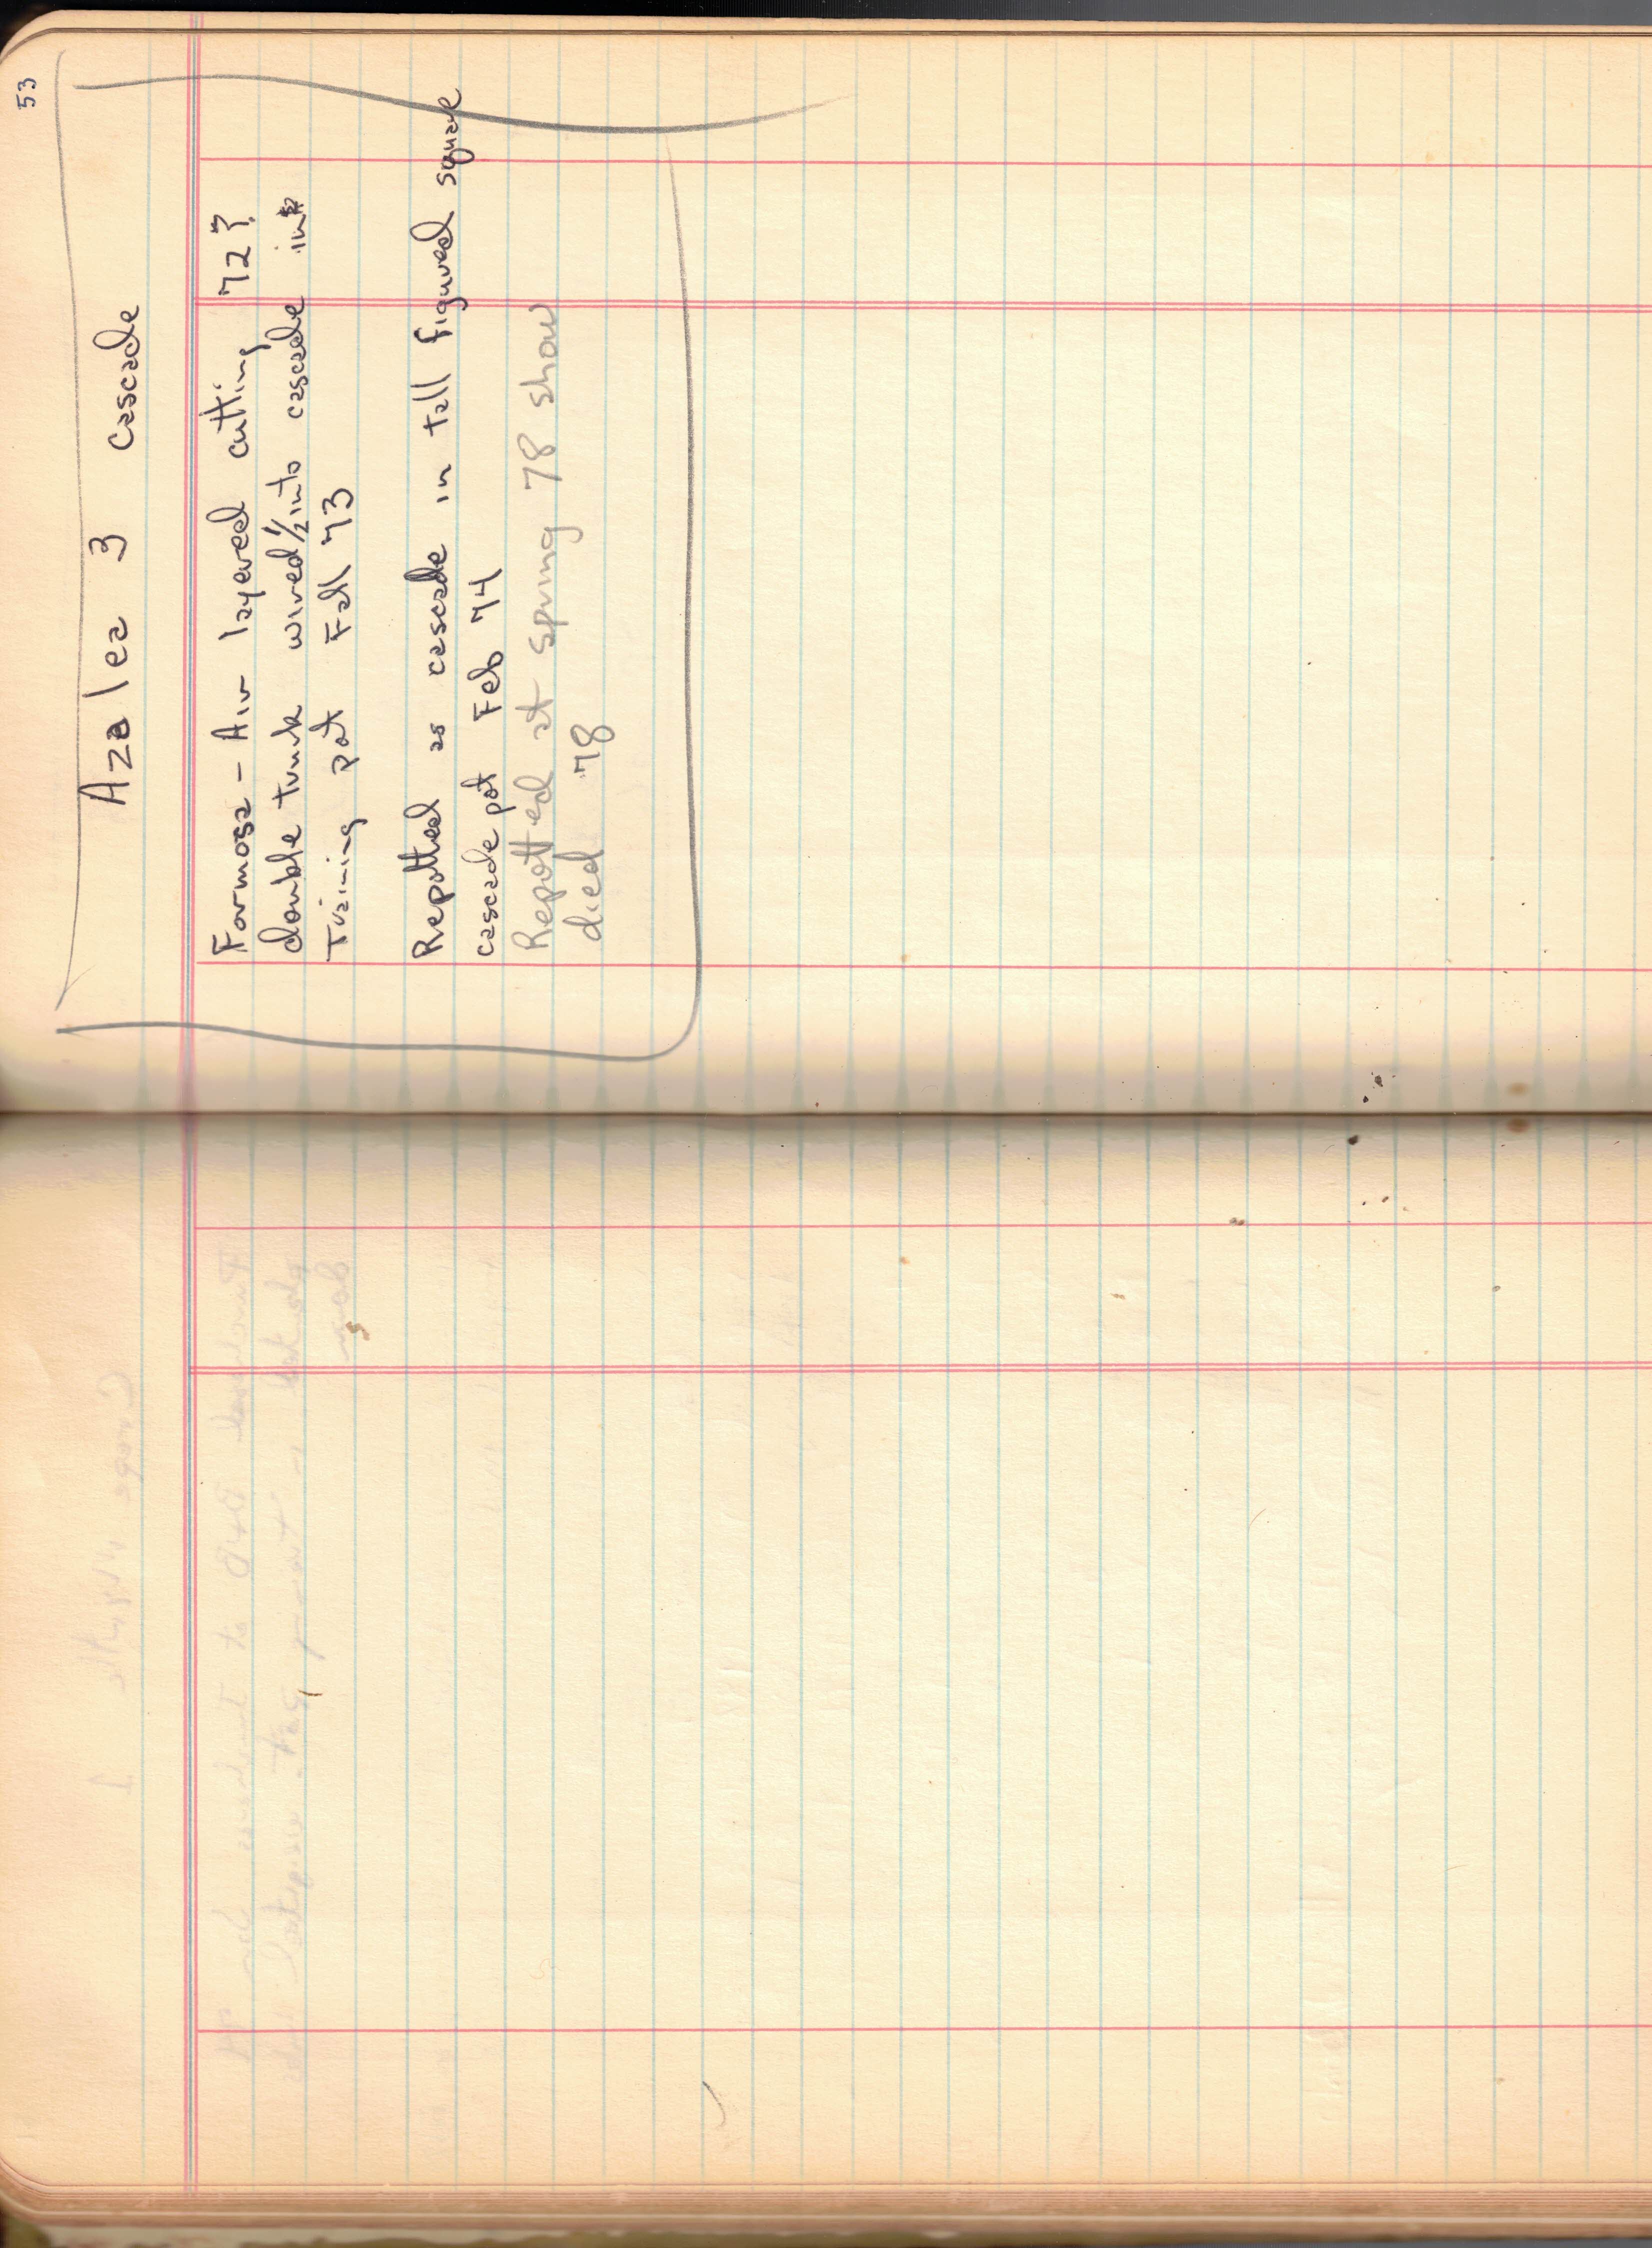 53
Azalea 3 cascade
Formosa - Air layered cutting 72?
double trunk wired 1/2 into cascade in
Training pot Fall 73
Repotted as cascade in tall figured square
cascade pot Feb 74
Repotted at spring 78 show
died 78